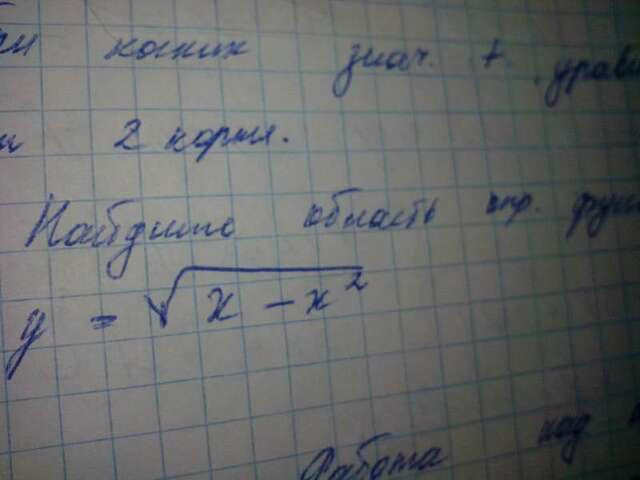 каких знач. t урав
2 корня.
Найдите область опр. функ
y = √x - x²
Работа над